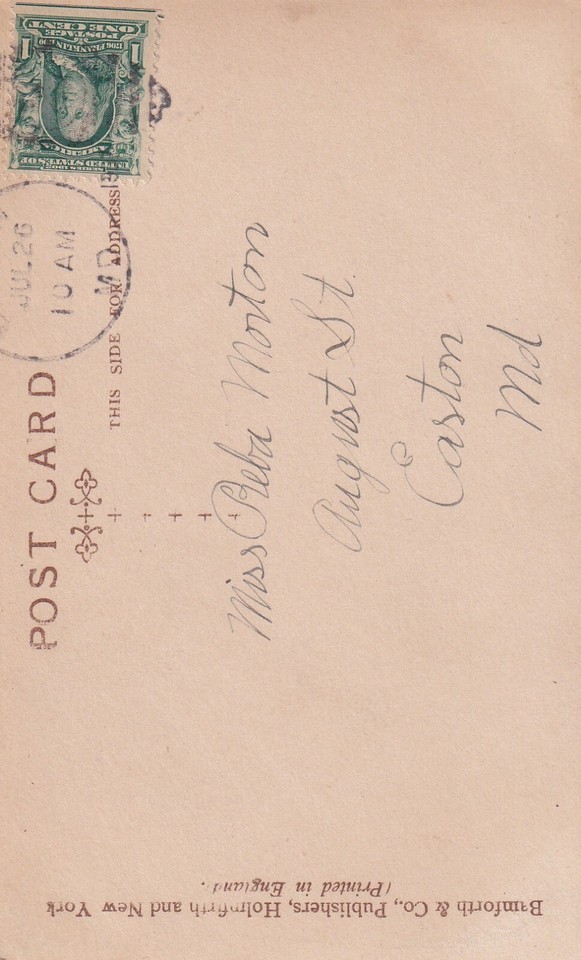 POST CARD
THIS SIDE FOR ADDRESS
JUL 26
10 AM
MD
SERIES 1902
UNITED STATES OF
AMERICA
1706 FRANKLIN 1790
POSTAGE
ONE CENT
1 1
Miss Reba Morton
August St.
Easton
Md
Bamforth & Co., Publishers, Holmfirth and New York
(Printed in England.